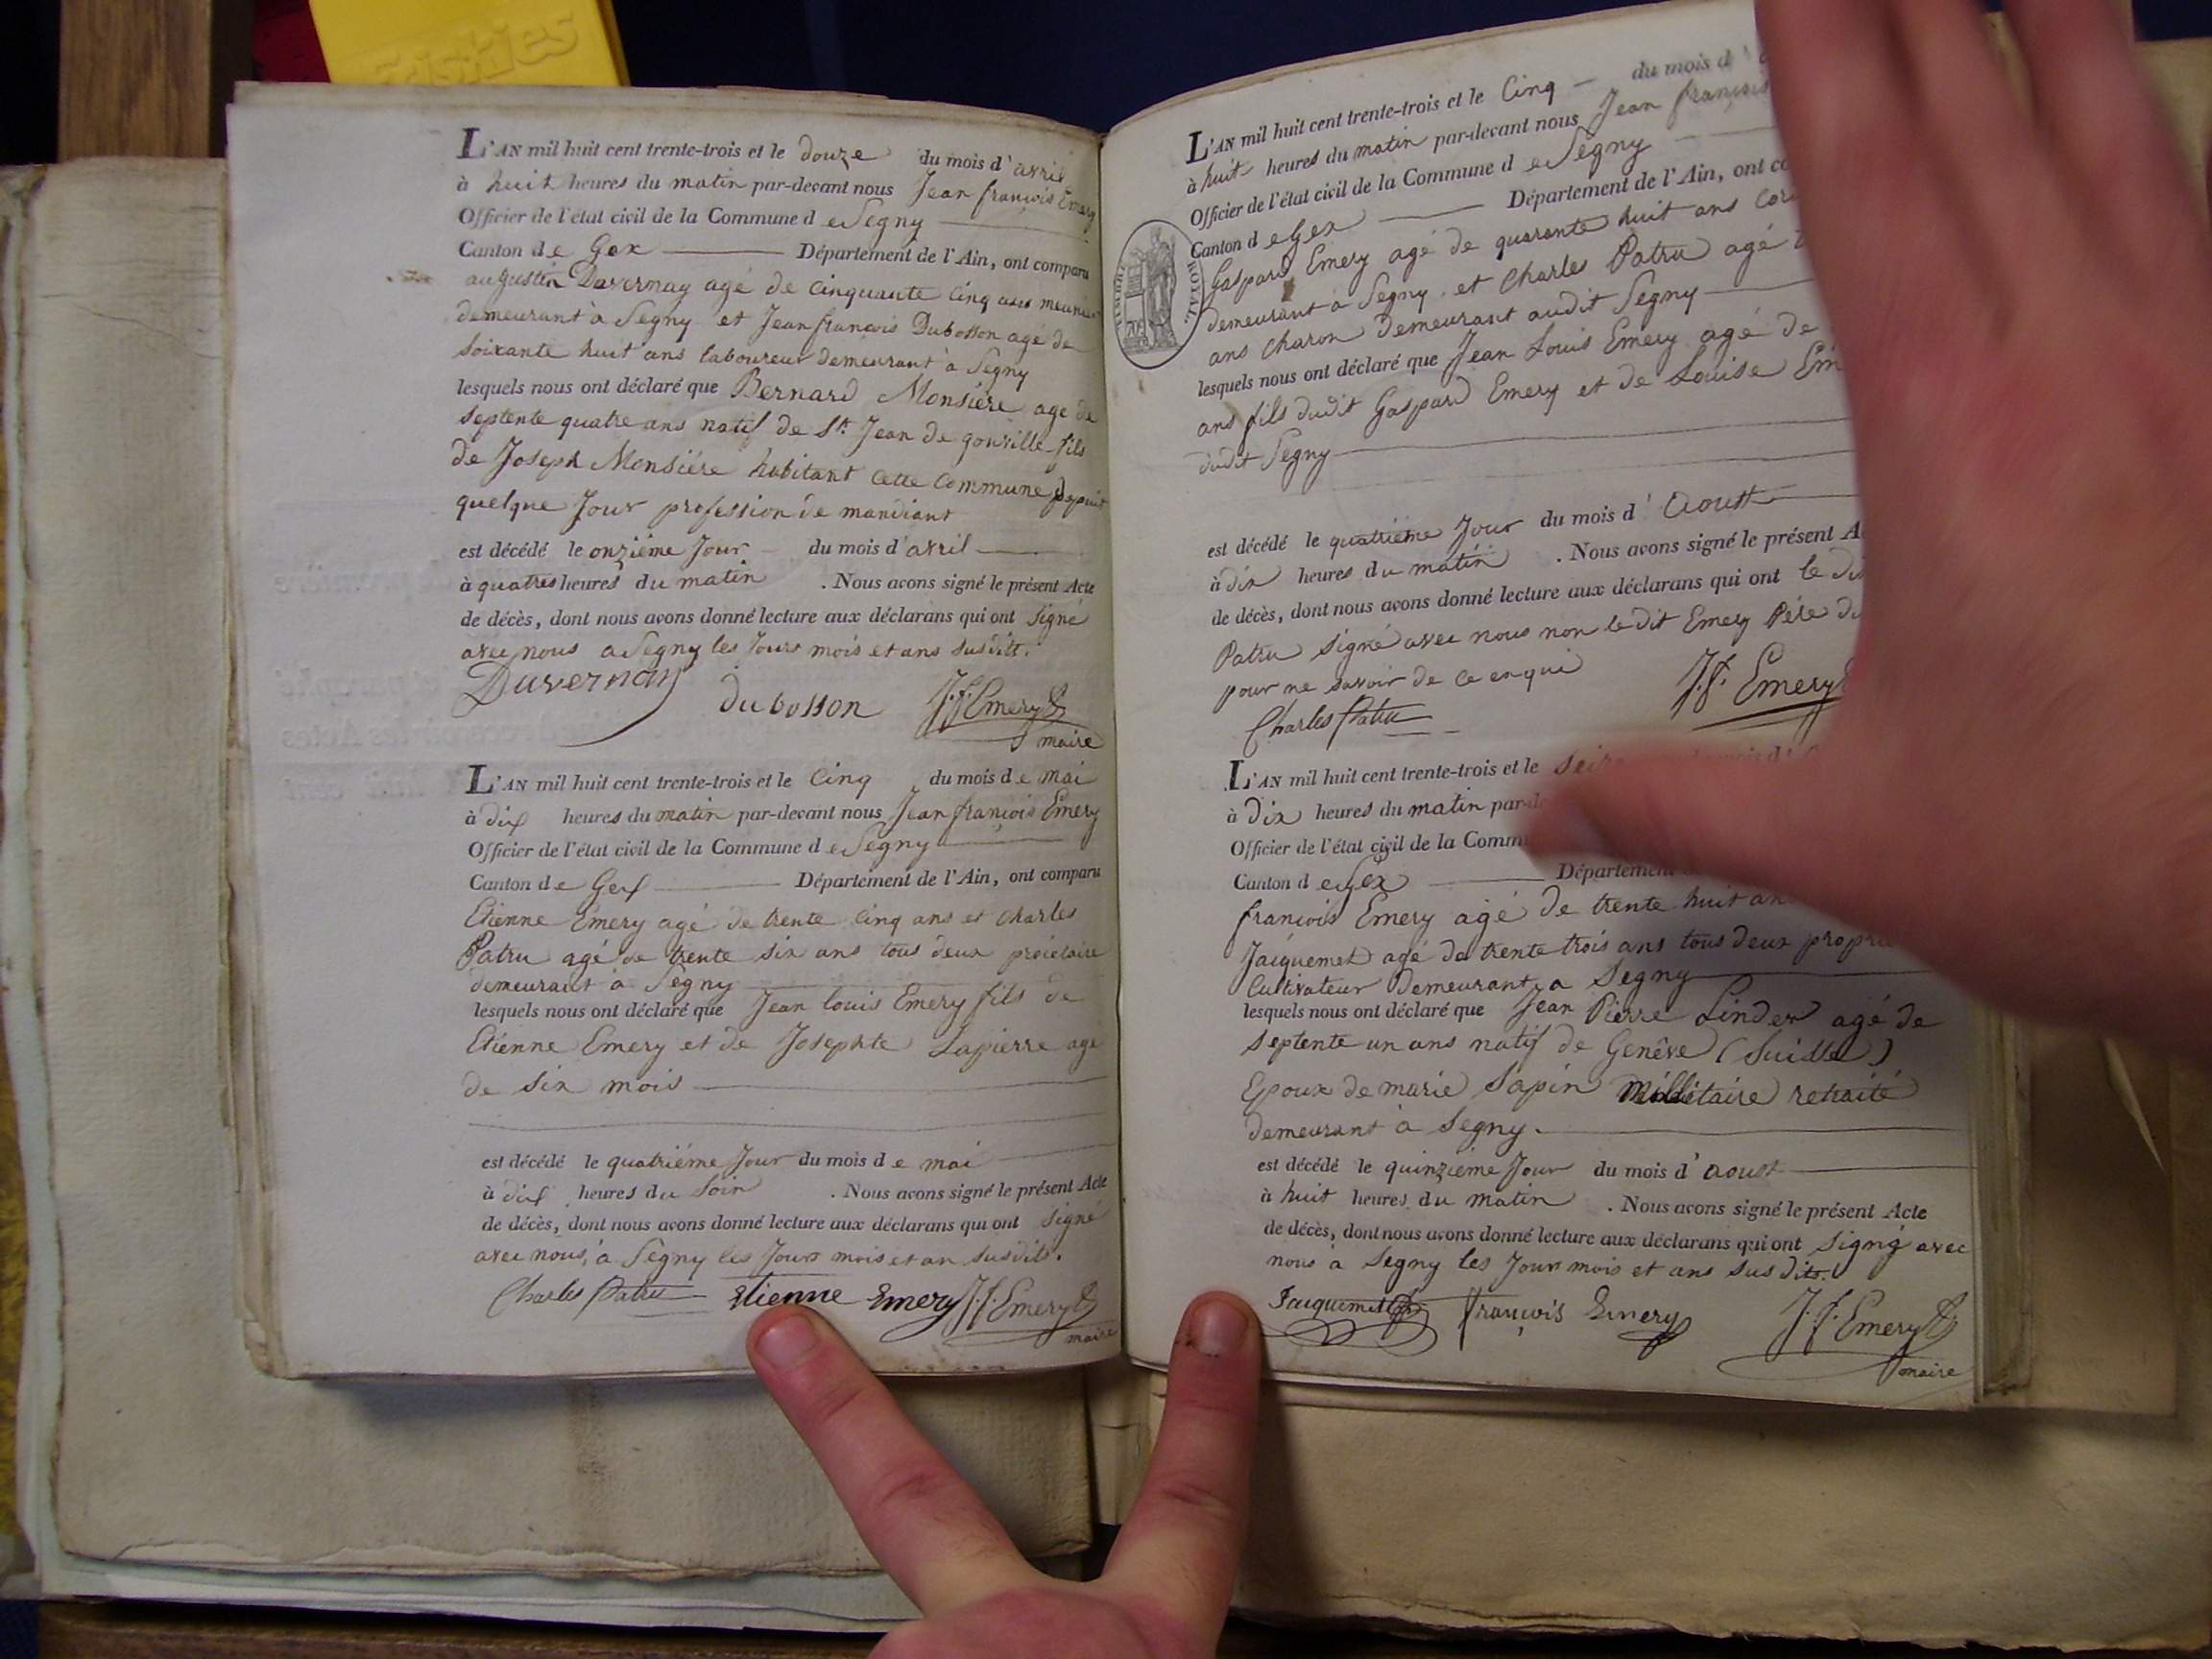 Friskies
L'AN mil huit cent trente-trois et le douze du mois d'avril
à huit heures du matin par-devant nous Jean françois Emery
Officier de l'état civil de la Commune de Segny
Canton de Gex Département de l'Ain, ont comparu
augustin Duvernay agé de cinquante cinq ans meunier
demeurant à Segny et Jean francois Dubosson agé de
soixante huit ans laboureur demeurant à Segny
lesquels nous ont déclaré que Bernard Monsiére age de
septente quatre ans natif de St. Jean de gonville fils
de Joseph Monsiére habitant cette Commune depuis
quelque Jour profession de mandiant
est décédé le onziéme Jour du mois d'avril
à quatres heures du matin . Nous avons signé le présent Acte
de décès, dont nous avons donné lecture aux déclarans qui ont signé
avec nous a Segny les Jours mois et ans susdits.
Duvernay dubosson J.f. Emery
maire
L'AN mil huit cent trente-trois et le Cinq du mois de mai
à dix heures du matin par-devant nous Jean françois Emery
Officier de l'état civil de la Commune de Segny
Canton de Gex Département de l'Ain, ont comparu
Etienne Emery agé de trente cinq ans et charles
Patru agé de trente six ans tous deux
demeurant à Segny
lesquels nous ont déclaré que Jean louis Emery fils de
Etienne Emery et de Josephte Lapierre age
de six mois
est décédé le quatriéme Jour du mois de mai
à dix heures du Soir . Nous avons signé le présent Acte
de décès, dont nous avons donné lecture aux déclarans qui ont signé
avec nous, à Segny les Jours mois et an susdits.
Charles Patru etienne Emery J.f. Emery
maire
L'AN mil huit cent trente-trois et le Cinq du mois d'
à huit heures du matin par-devant nous Jean françois
Officier de l'état civil de la Commune de Segny
Canton de Gex Département de l'Ain, ont co
TIMBRE ROYAL
Gaspard Emery agé de quarante huit ans
demeurant à Segny et Charles Patru agé
ans charon demeurant audit Segny
lesquels nous ont déclaré que Jean Louis Emery agé de
ans fils dudit Gaspard Emery et de Louise Em
dudit Segny
est décédé le quatriéme Jour du mois d'Aoust
à dix heures du matin . Nous avons signé le présent A
de décès, dont nous avons donné lecture aux déclarans qui ont le di
Patru signé avec nous non le dit Emery Pére du
pour ne savoir de ce enqui
Charles Patru J.f. Emery
L'AN mil huit cent trente-trois et le
à dix heures du matin par-de
Officier de l'état civil de la Comm
Canton de Gex Département
francois Emery agé de trente huit an
Jaiquemet agé de trente trois ans tous deux propri
Cultivateur Demeurant a Segny
lesquels nous ont déclaré que Jean Pierre Linder agé de
septente un ans natif de Genêve (Suisse)
Epoux de marie Sapin millitaire retraité
demeurant à Segny.
est décédé le quinziéme Jour du mois d'aoust
à huit heures du matin . Nous avons signé le présent Acte
de décès, dont nous avons donné lecture aux déclarans qui ont signé avec
nous à Segny les Jours mois et ans sus dits.
Jaiquemet françois Emery J.f. Emery
maire